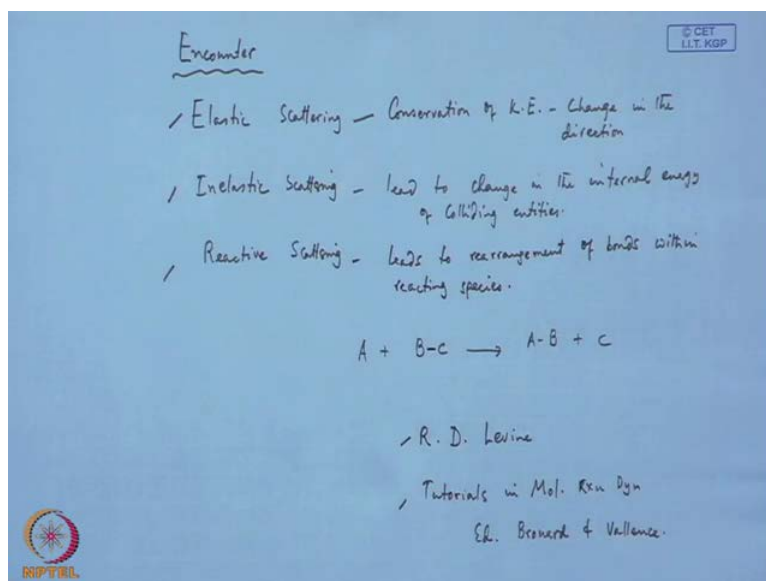 © CET
I.I.T. KGP
Encounter
Elastic Scattering – Conservation of K.E. – Change in the
direction
Inelastic Scattering – lead to change in the internal energy
of Colliding entities.
Reactive Scattering – leads to rearrangement of bonds within
reacting species.
A + B-C → A-B + C
R. D. Levine
Tutorials in Mol. Rxn Dyn
Ed. Brouard & Vallance.
NPTEL